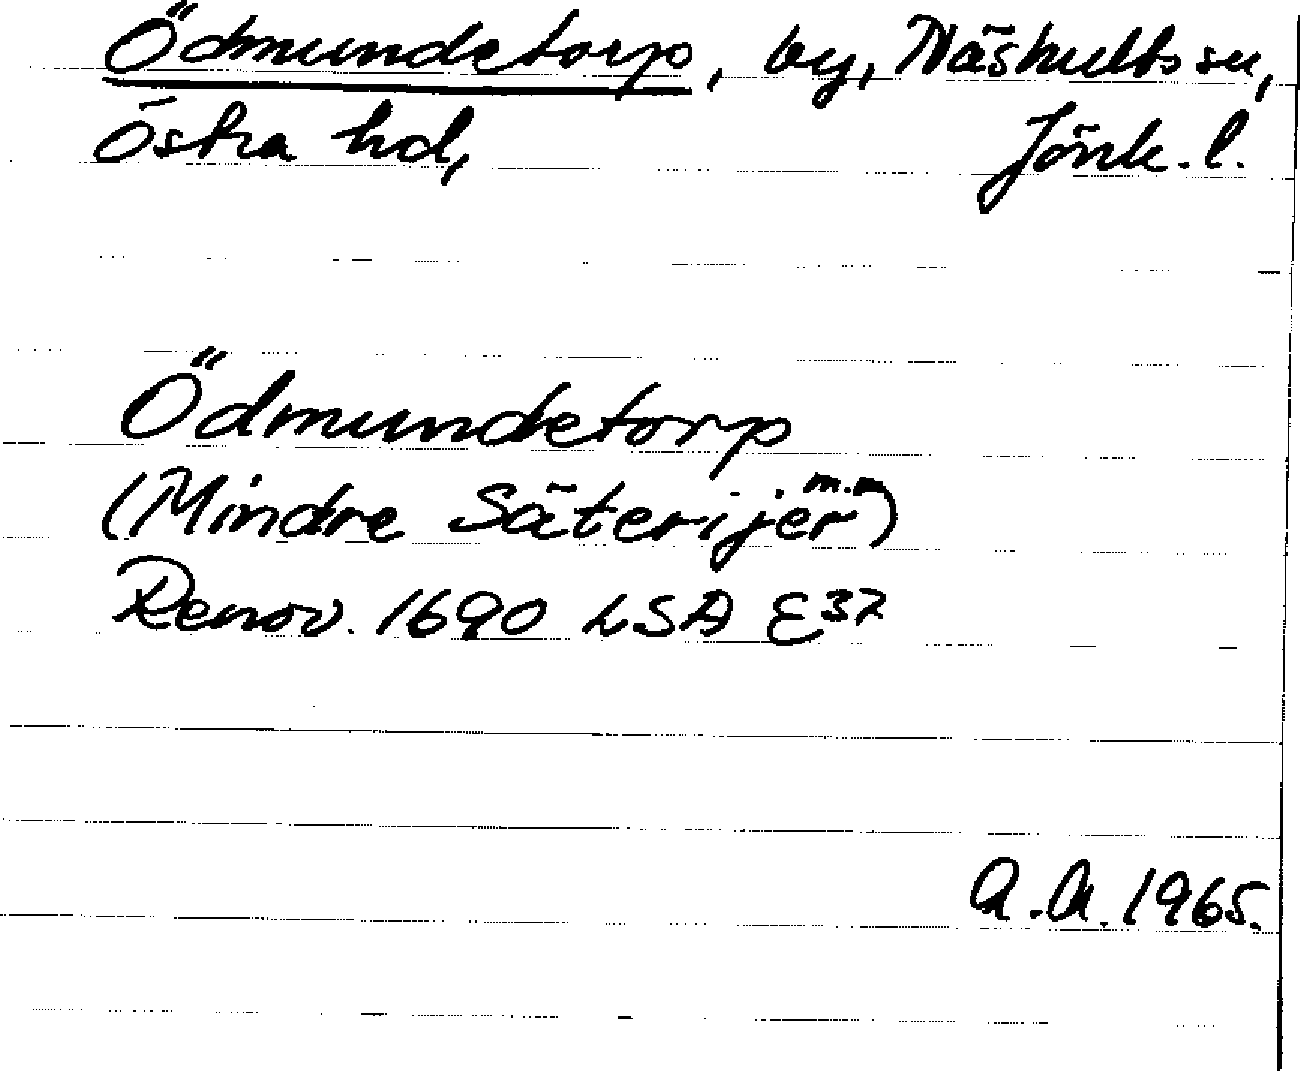 Ödmundetorp, by, Näshults sn,
Östra hd, Jönk. l.
Ödmundetorp
(Mindre Säterijer m.m)
Renov. 1690 LSA E37
A.A. 1965.